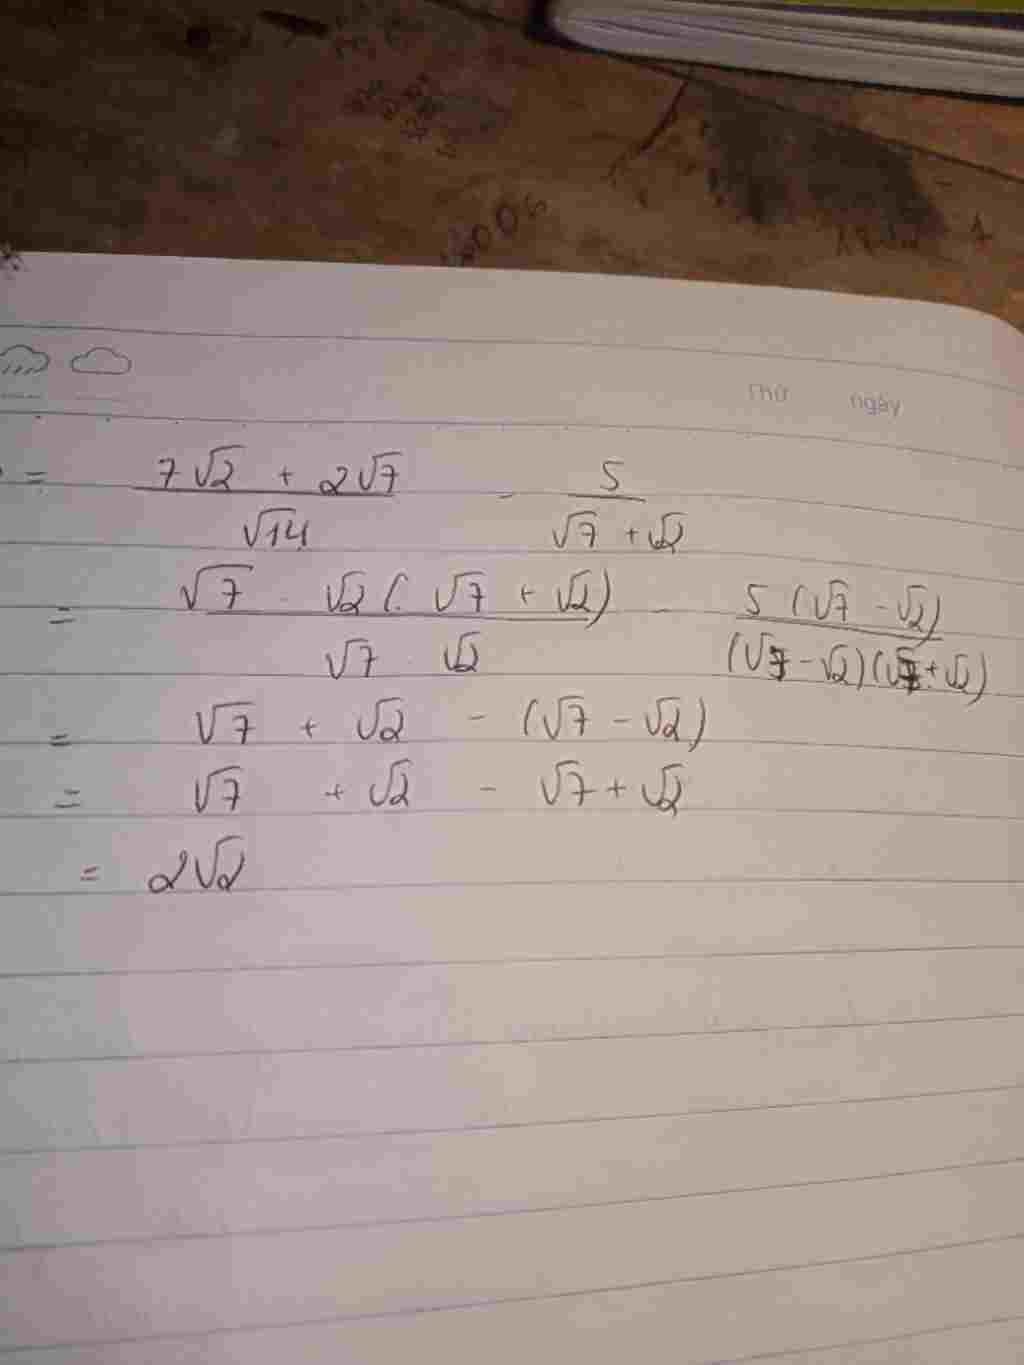 Thứ ngày
= 7√2 + 2√7 / √14 - 5 / √7 + √2
= √7 · √2 (√7 + √2) / √7 · √2 - 5 (√7 - √2) / (√7 - √2)(√7 + √2)
= √7 + √2 - (√7 - √2)
= √7 + √2 - √7 + √2
= 2√2